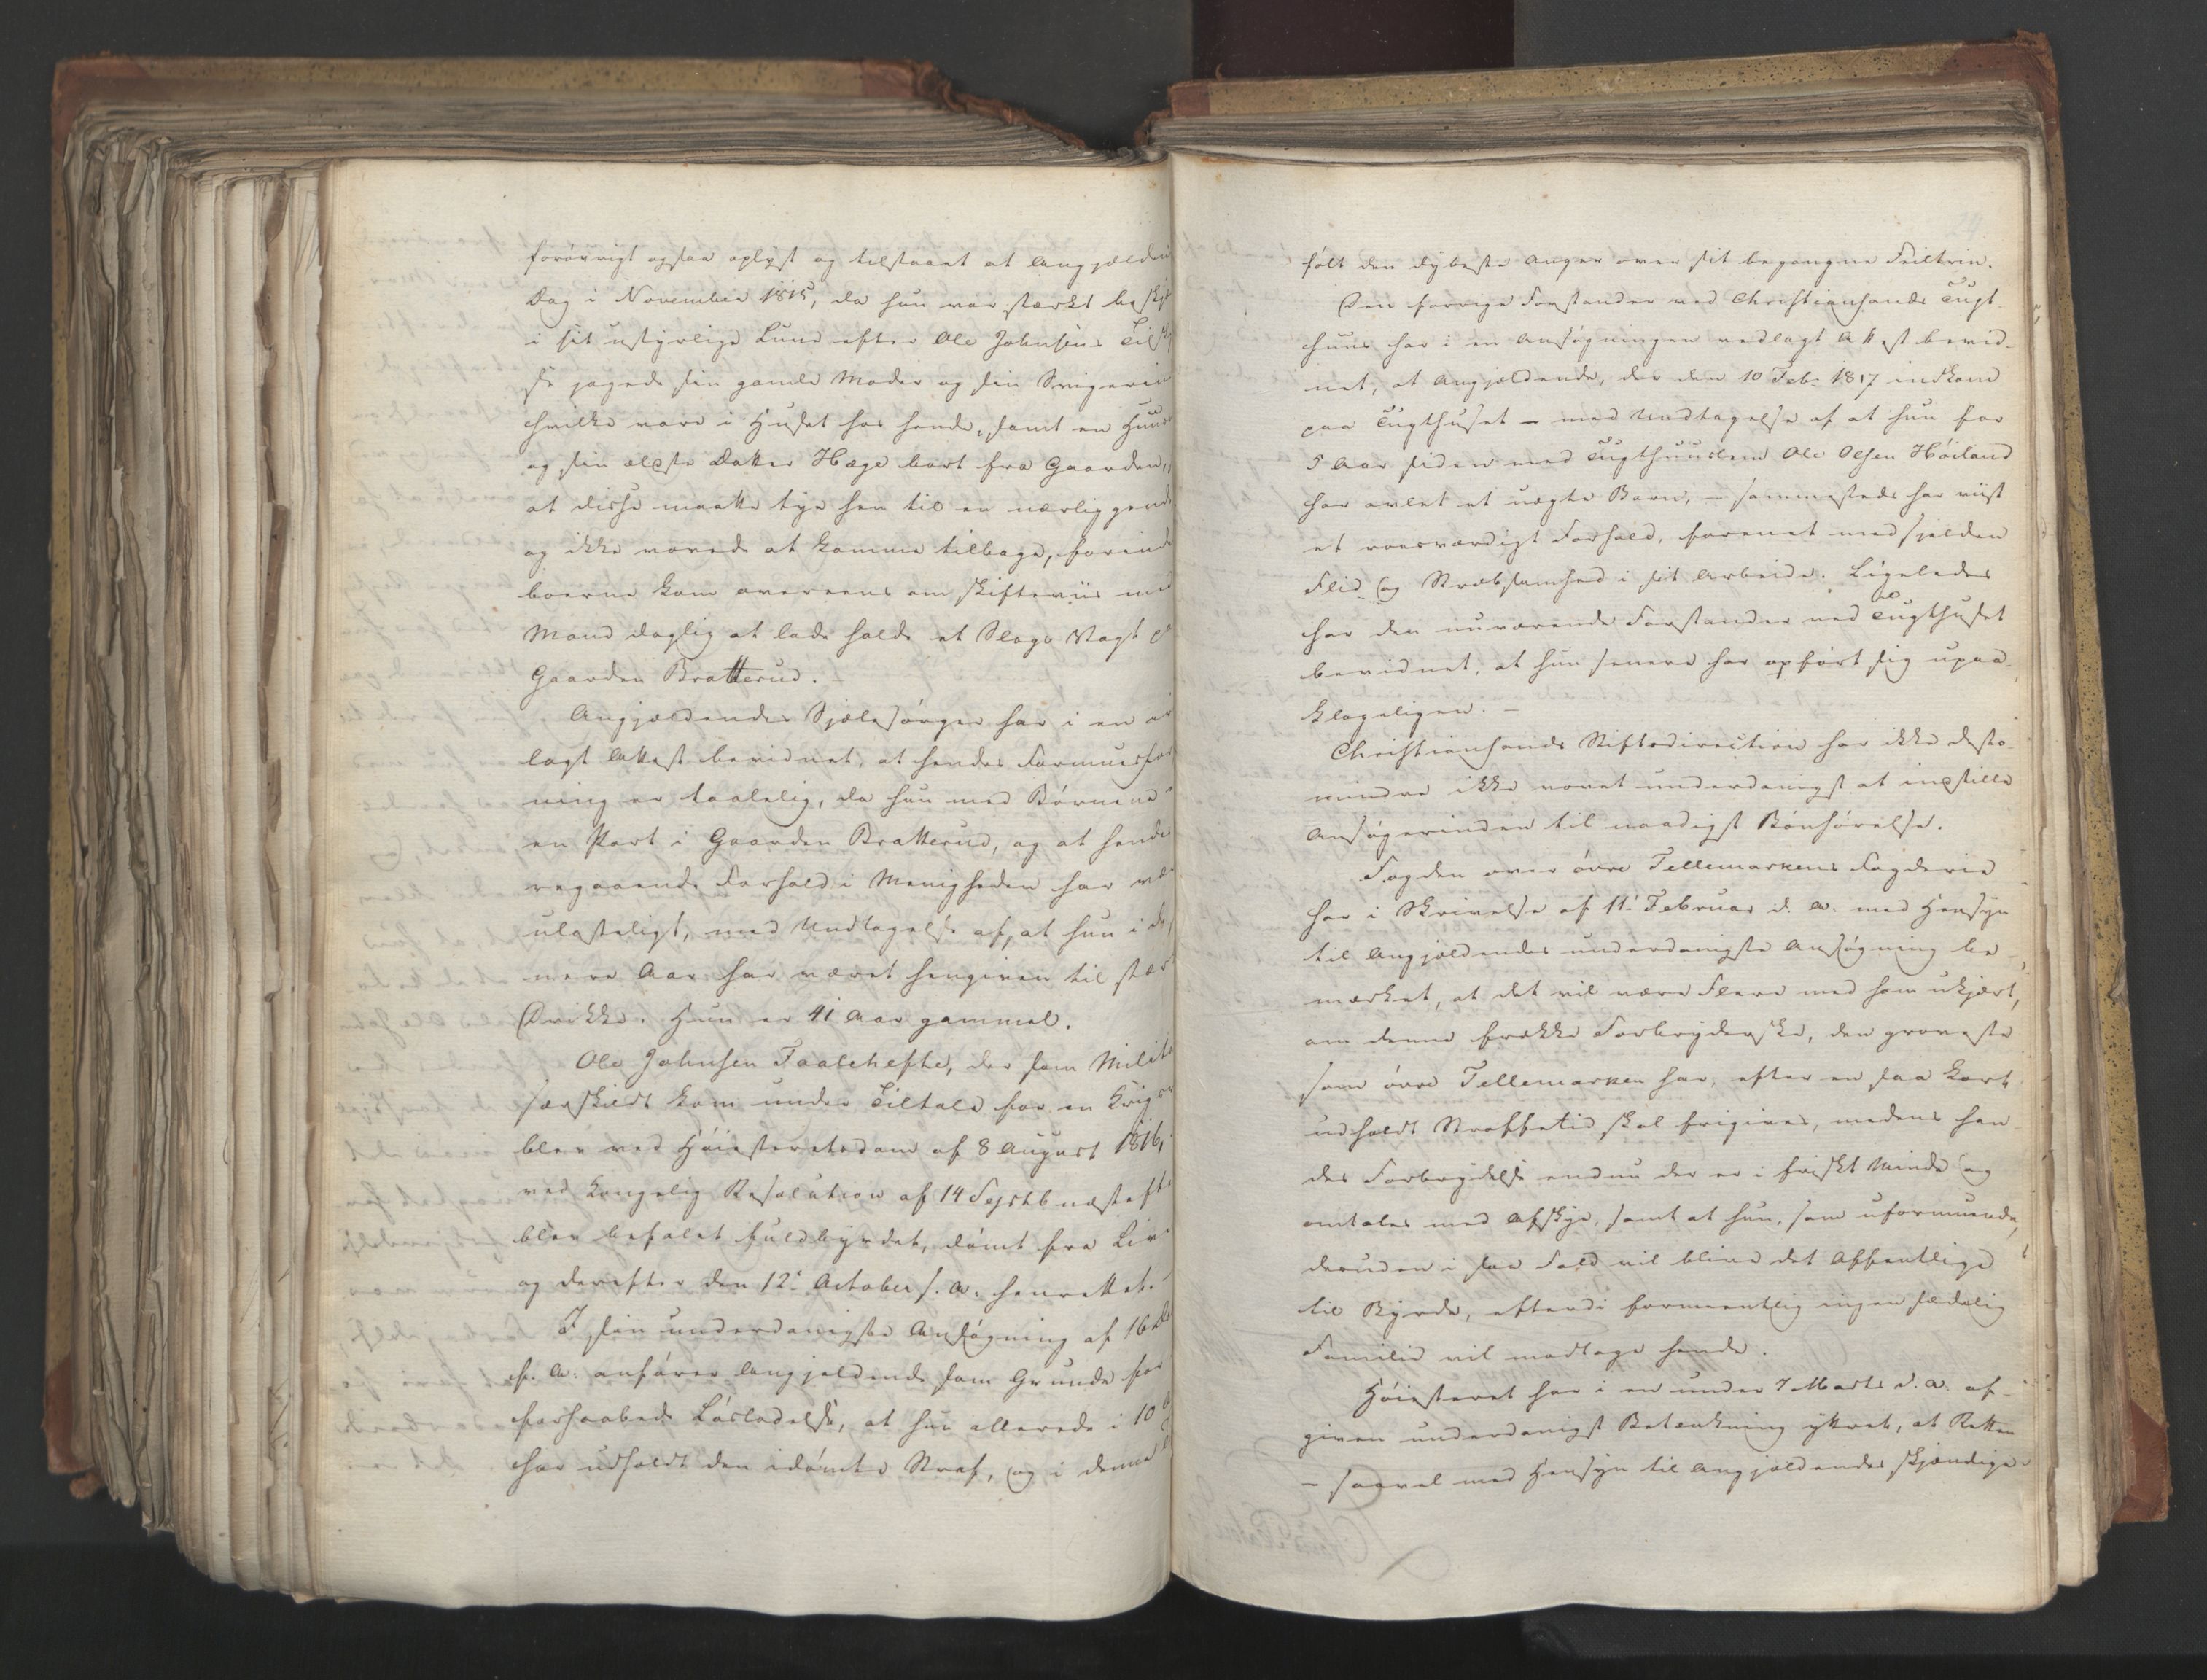 forøvrigt ogsaa oplyst og tilstaaet at Angjælden
Dag i November 1815, da hun var stærkt besk
i sit ustyrlige Lune efter Ole Johnsens Til
se jagede sin gamle Moder og sin Svigerin
hvilke vare i Huset hos hende, samt en Huus
og sin ældste Datter Hæge bort fra Gaarden,
at disse maatte tye hen til en nærliggende
og ikke vovede at komme tilbage, forind
boerne kom overeens om skifteviis me
Mand daglig at lade holde et Slags Vagt p
Gaarden Bratterud.
Angjældendes Sjælesørger har i en
lagt Attest bevidnet, at hendes Formuesfor
ning er taalelig, da hun med Børnene
en Part i Gaarden Bratterud, og at hendes
regaaende Forhold i Menigheden har væ
ulasteligt, med Undtagelse af, at hun i de
nere Aar har været hengiven til stær
Drikke. Hun er 41 Aar gammel.
Ole Johnsen Faalehefte, der som Milit
særskildt kom under Tiltale for en Krigs
blev ved Høiesteretsdom af 8 August 1816,
ved Kongelig Resolution af 14 Septb næsteft
blev befalet fuldbyrdet, dømt fra Liv
og derefter den 12t October s. A. henrettet.
I sin underdanigste Ansøgning af 16 De
f. A. anfører Angjeldende som Grunde for
forhaabede Løsladelse, at hun allerede i 10
har udholdt den idømte Straf, og i denne
24
følt den dybeste Anger over sit begangne Feiltrin.
Den forrige Forstander ved Christiansands Tugt
huus har i en Ansøgningen vedlagt Attest bevid-
net, at Angjældende, der den 10 Feb: 1817 indkom
paa Tugthuset – med Undtagelse af at hun for
5 Aar siden med Tugthuuslem Ole Olsen Høiland
har avlet et uægte Barn, – sammesteds har viist
et roesværdigt Forhold, forenet med sjelden
Flid og Stræbsomhed i sit Arbeide. Ligeledes
har den nuværende Forstander ved Tugthuset
bevidnet, at hun senere har opført sig upaa-
klageligen. –
Christiansands Stiftsdirection har ikke desto-
mindre ikke vovet underdanigst at indstille
Ansøgerinden til naadigst Bønhørelse.
Fogden over øvre Tellemarkens Fogderie
har i Skrivelse af 11t Februar d. A. med Hensyn
til Angjældendes underdanigste Ansøgning be-
mærket, at det vil være Flere med ham ukjært,
om denne frække Forbryderske, den groveste
som øvre Tellemarken har, efter en saa kort
udholdt Straffetid skal frigives, medens hen-
des Forbrydelse endnu der er i friskt Minde og
omtales med Afskye, samt at hun, som uformuende,
desuden i saa Fald vil blive det Offentlige
til Byrde, efterdi formeentlig ingen sædelig
Familie vil modtage hende.
Høiesteret har i en under 7 Marts d. A. af-
given underdanigst Betænkning yttret, at Retten
– saavel med Hensyn til Angjældendes skjændige